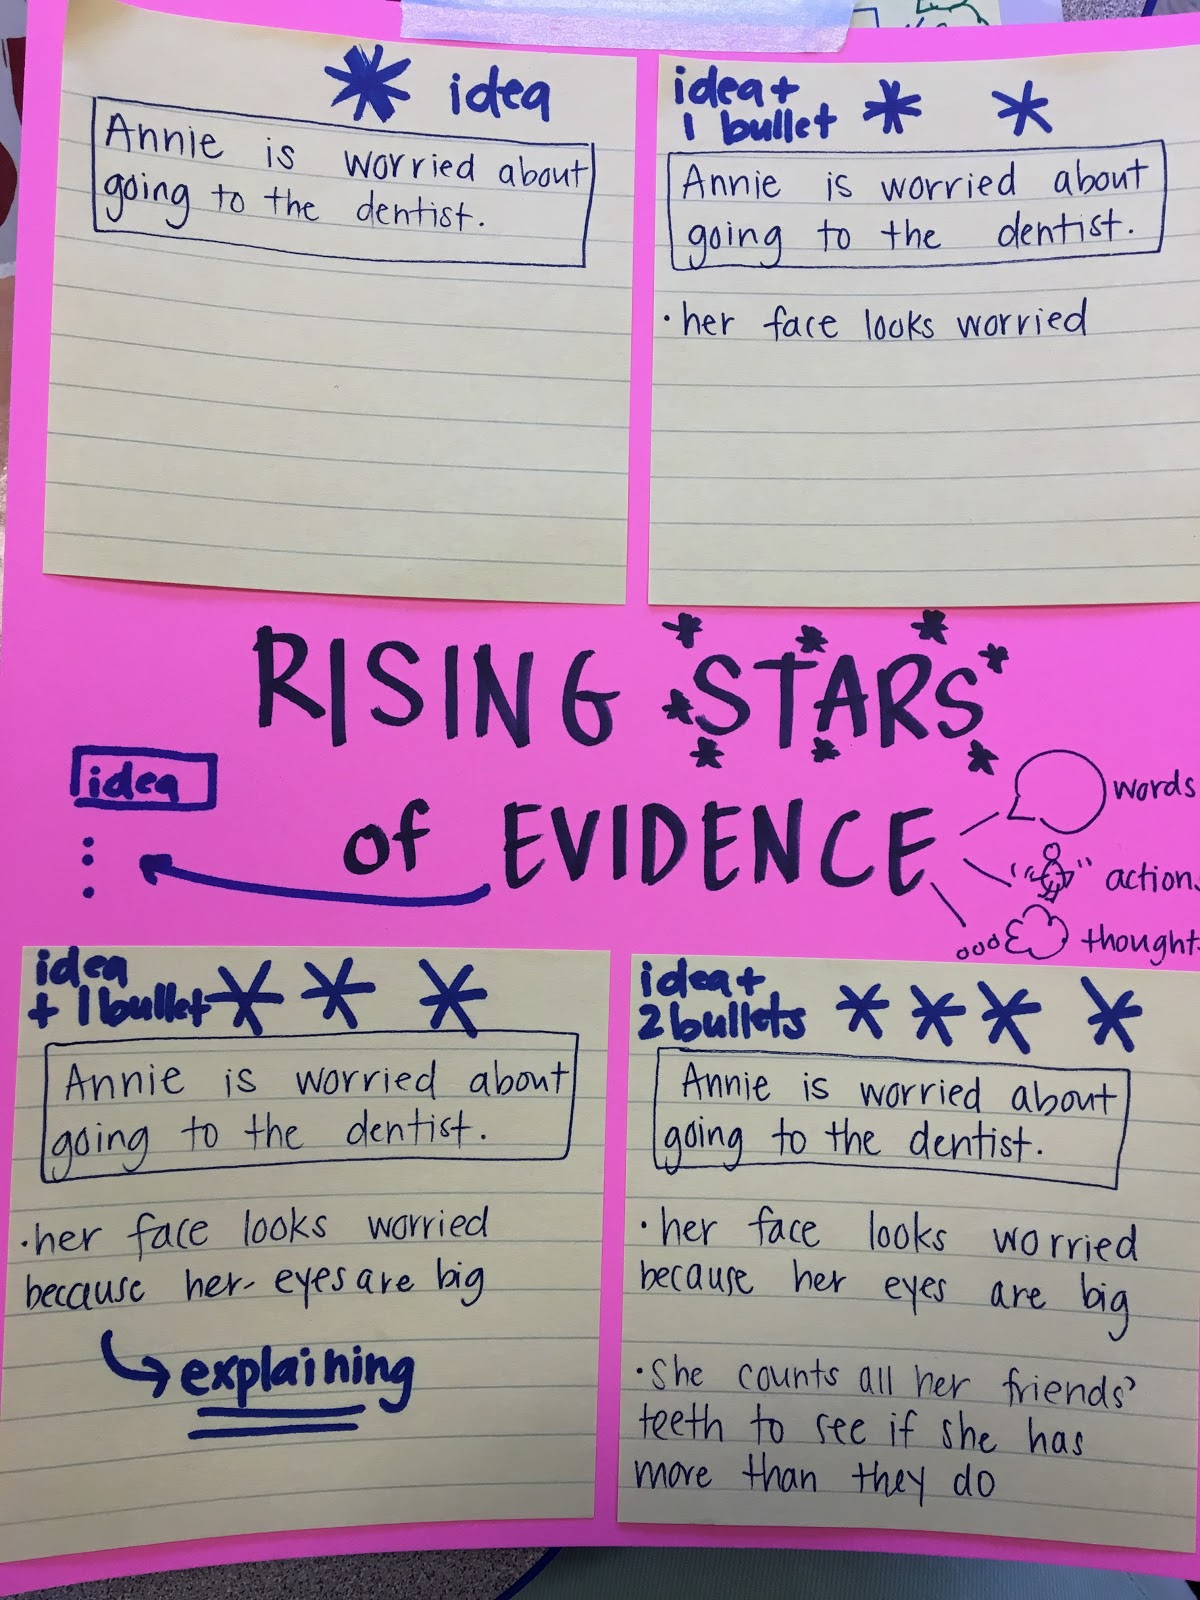 idea
Annie is worried about
going to the dentist.
idea+
1 bullet
Annie is worried about
going to the dentist.
·her face looks worried
RISING STARS
of EVIDENCE
idea
words
action
thought
idea
+ 1 bullet
Annie is worried about
going to the dentist.
·her face looks worried
because her eyes are big
explaining
idea+
2 bullets
Annie is worried about
going to the dentist.
·her face looks worried
because her eyes are big
·She counts all her friends'
teeth to see if she has
more than they do